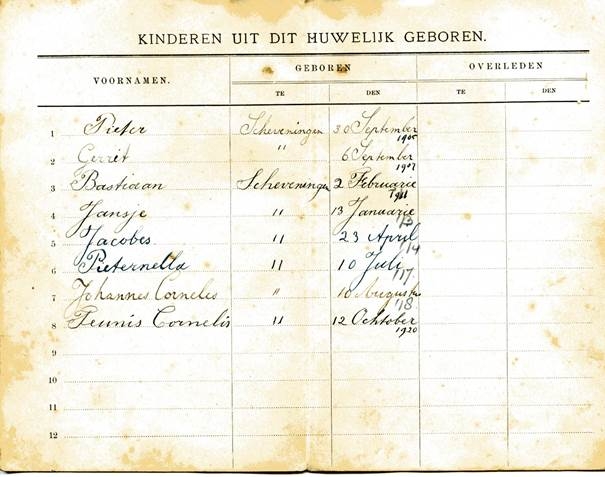 KINDEREN UIT DIT HUWELIJK GEBOREN.
VOORNAMEN. GEBOREN OVERLEDEN
TE DEN TE DEN
1 Pieter Scheveningen 30 September 1905
2 Gerrit " 6 September 1907
3 Bastiaan Scheveningen 2 Februarie 1911
4 Jansje " 13 Januarie '13
5 Jacobes " 23 April '14
6 Pieternella " 10 Juli '17
7 Johannes Corneles " 10 Augustus '18
8 Teunis Cornelis " 12 Ochtober 1920
9
10
11
12